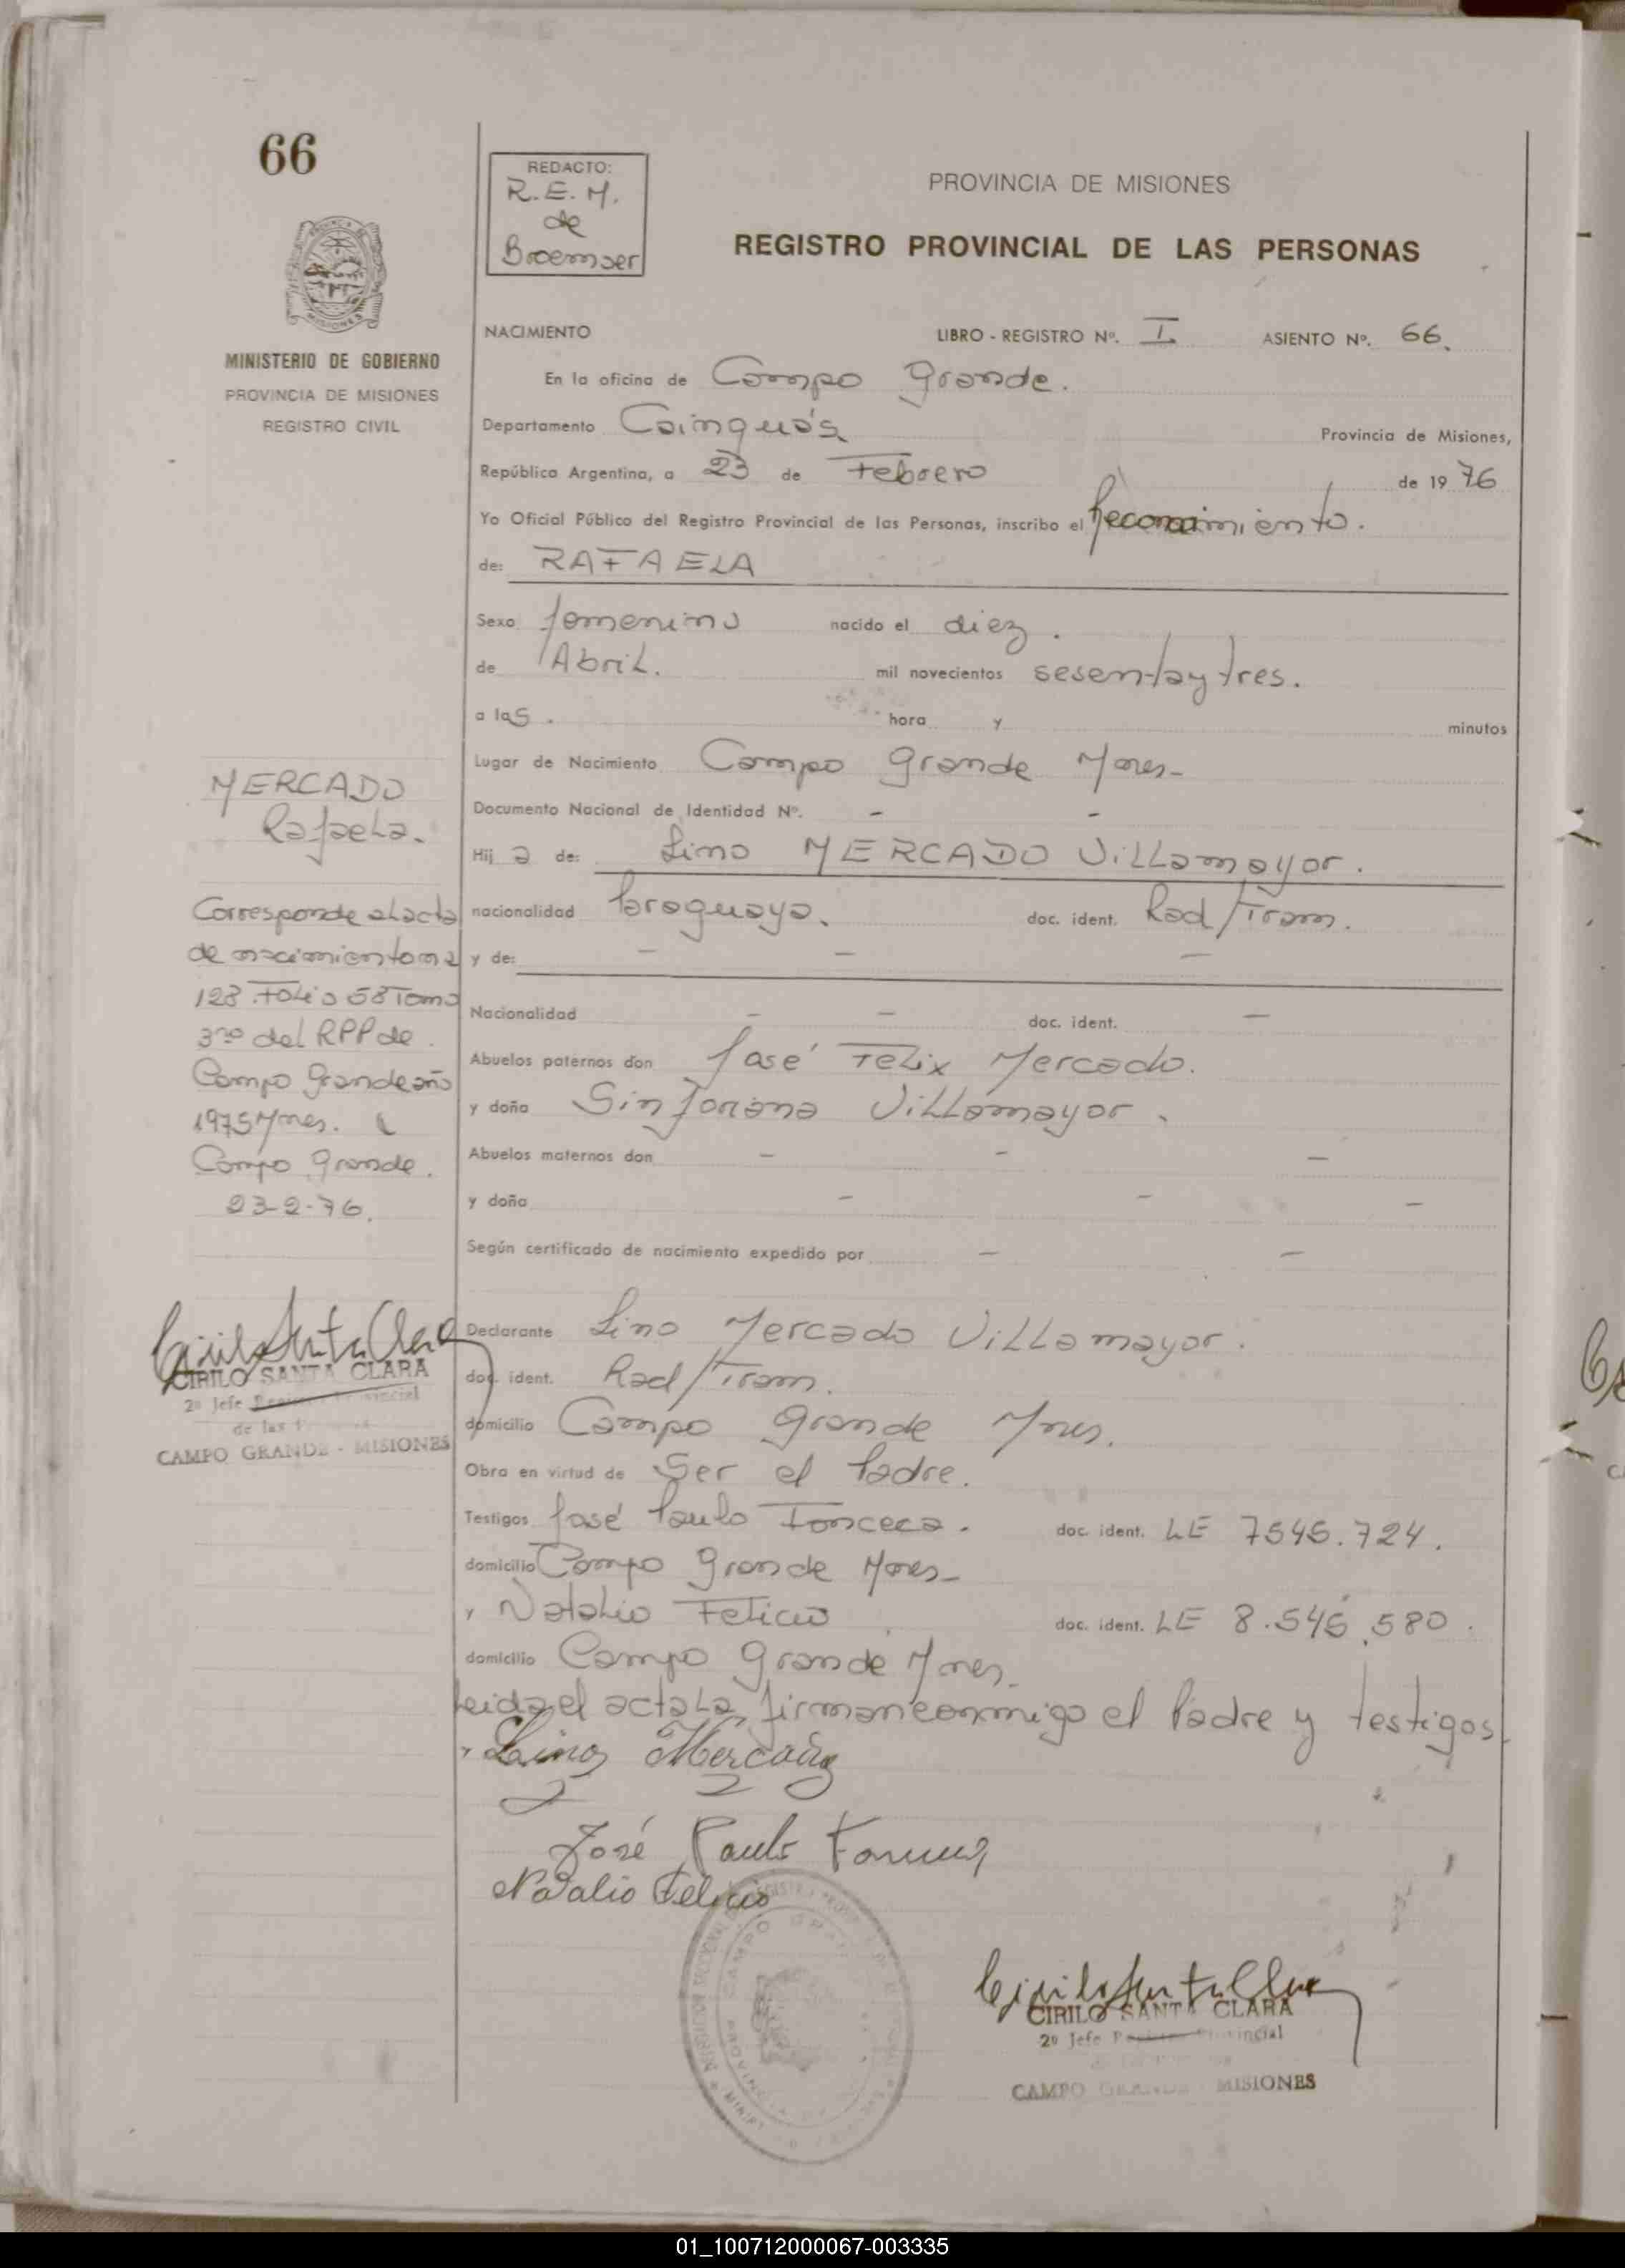 66
REDACTO:
R.E.M.
de
Broemser
PROVINCIA DE MISIONES
REGISTRO PROVINCIAL DE LAS PERSONAS
MINISTERIO DE GOBIERNO
PROVINCIA DE MISIONES
REGISTRO CIVIL
NACIMIENTO LIBRO - REGISTRO Nº. I ASIENTO Nº. 66.
En la oficina de Campo Grande.
Departamento Cainguás Provincia de Misiones,
República Argentina, a 23 de Febrero de 19 76
Yo Oficial Público del Registro Provincial de las Personas, inscribo el Reconocimiento.
de: RAFAELA
Sexo femenino nacido el diez.
de Abril. mil novecientos sesenta y tres.
a las. hora y minutos
Lugar de Nacimiento Campo Grande Mnes-
Documento Nacional de Identidad Nº. - -
Hij a de: Lino MERCADO Villamayor.
nacionalidad Paraguaya. doc. ident. Rad/Tram.
y de: - - -
Nacionalidad - - doc. ident. -
Abuelos paternos don José Felix Mercado.
y doña Sinforiana Villamayor.
Abuelos maternos don - - -
y doña - - -
Según certificado de nacimiento expedido por - -
MERCADO
Rafaela.
Corresponde al acta
de nacimiento nº
128 Folio 58 Tomo
3ro del RPP de
Campo Grande año
1975 Mnes.
Campo Grande.
23-2-76.
CIRILO SANTA CLARA
2º Jefe Provincial
de las
CAMPO GRANDE - MISIONES
Declarante Lino Mercado Villamayor.
doc. ident. Rad/Tram.
domicilio Campo Grande Mnes.
Obra en virtud de Ser el Padre.
Testigos José Paulo Fonceca. doc. ident. LE 7545.724.
domicilio Campo Grande Mnes-
y Natalio Felicio doc. ident. LE 8.545.580.
domicilio Campo Grande Mnes.
Leida el acta La firman conmigo el Padre y testigos
Lino Mercado
José Paulo
Natalio Felicio
CIRILO SANTA CLARA
2º Jefe Provincial
CAMPO GRANDE - MISIONES
01_100712000067-003335